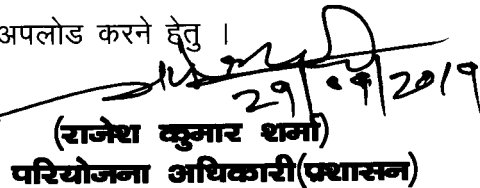 अपलोड करने हेतु ।
29/09/2019
(राजेश कुमार शर्मा)
परियोजना अधिकारी(प्रशासन)